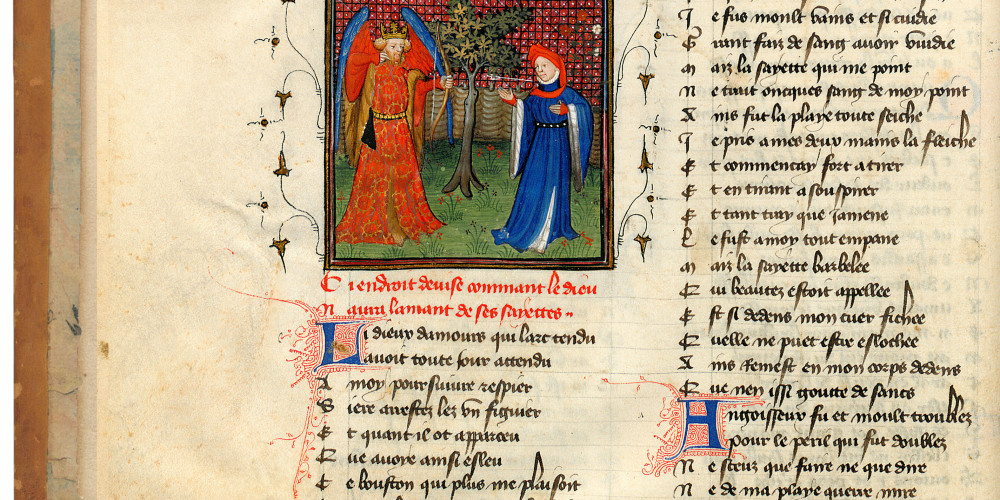 Ci endroit devise commant le dieu
Navra lamant de ses sayettes
Li dieux damours qui larc tendu
avoit toute jour attendu
A moy poursuivre et espier
Siere arrestez lez un figuier
Et quant il ot apparceu
Que avoye ainsi esleu
Ce bouston qui plus me plaisoit
Je fus moult vains et si cuidie
Grant faiz de sang avoir vuidie
Maiz la sayette qui me point
Ne trait oncques sang de moy point
Ains fut la playe toute seiche
Je pris a mes deux mains la fleiche
Et commencay fort a tirer
Et en tirant a souspirer
Et tant tiray que jamene
Le fust a moy tout empane
Maiz la sayette barbelee
Qui beautez estoit appellee
Est si dedens mon cuer fichee
Quelle ne puet estre eslochee
Ains remest en mon corps dedens
Que nen issi goutte de sancs
Angoisseux fu et moult troublez
pour le peril qui fut doublez
Ne sceuz que faire ne que dire
Ne de ma playe querre mire